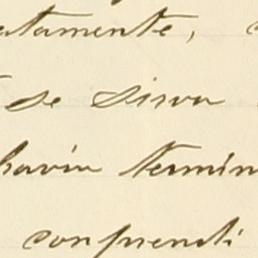 atamente,
se sirva
havia termin
comprendi